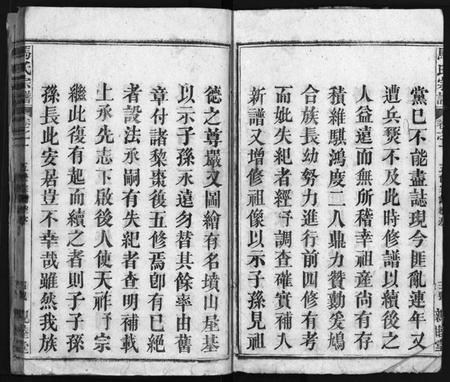 黨已不能盡誌現今匪亂連年又
遭兵燹不及此時修譜以續後之
人益遠而無所稽幸祖產尚有存
積雜騏鴻慶二人鼎力贊勷爰鳩
合族長幼努力進行前四修有美
而妣失紀者經手調查確實補入
新譜又增修祖像以示子孫見祖
德之尊嚴又圖繪有名墳山墓基
以示子孫永遠勿替其餘率由舊
章付諸黎棗後五修焉即有已絕
者設法承嗣有失紀者查明補載
上承先志下啟後人使天祚予宗
繼此復有起而續之者則子子孫
孫長此安居豈不幸哉雖然我族
馬氏宗譜